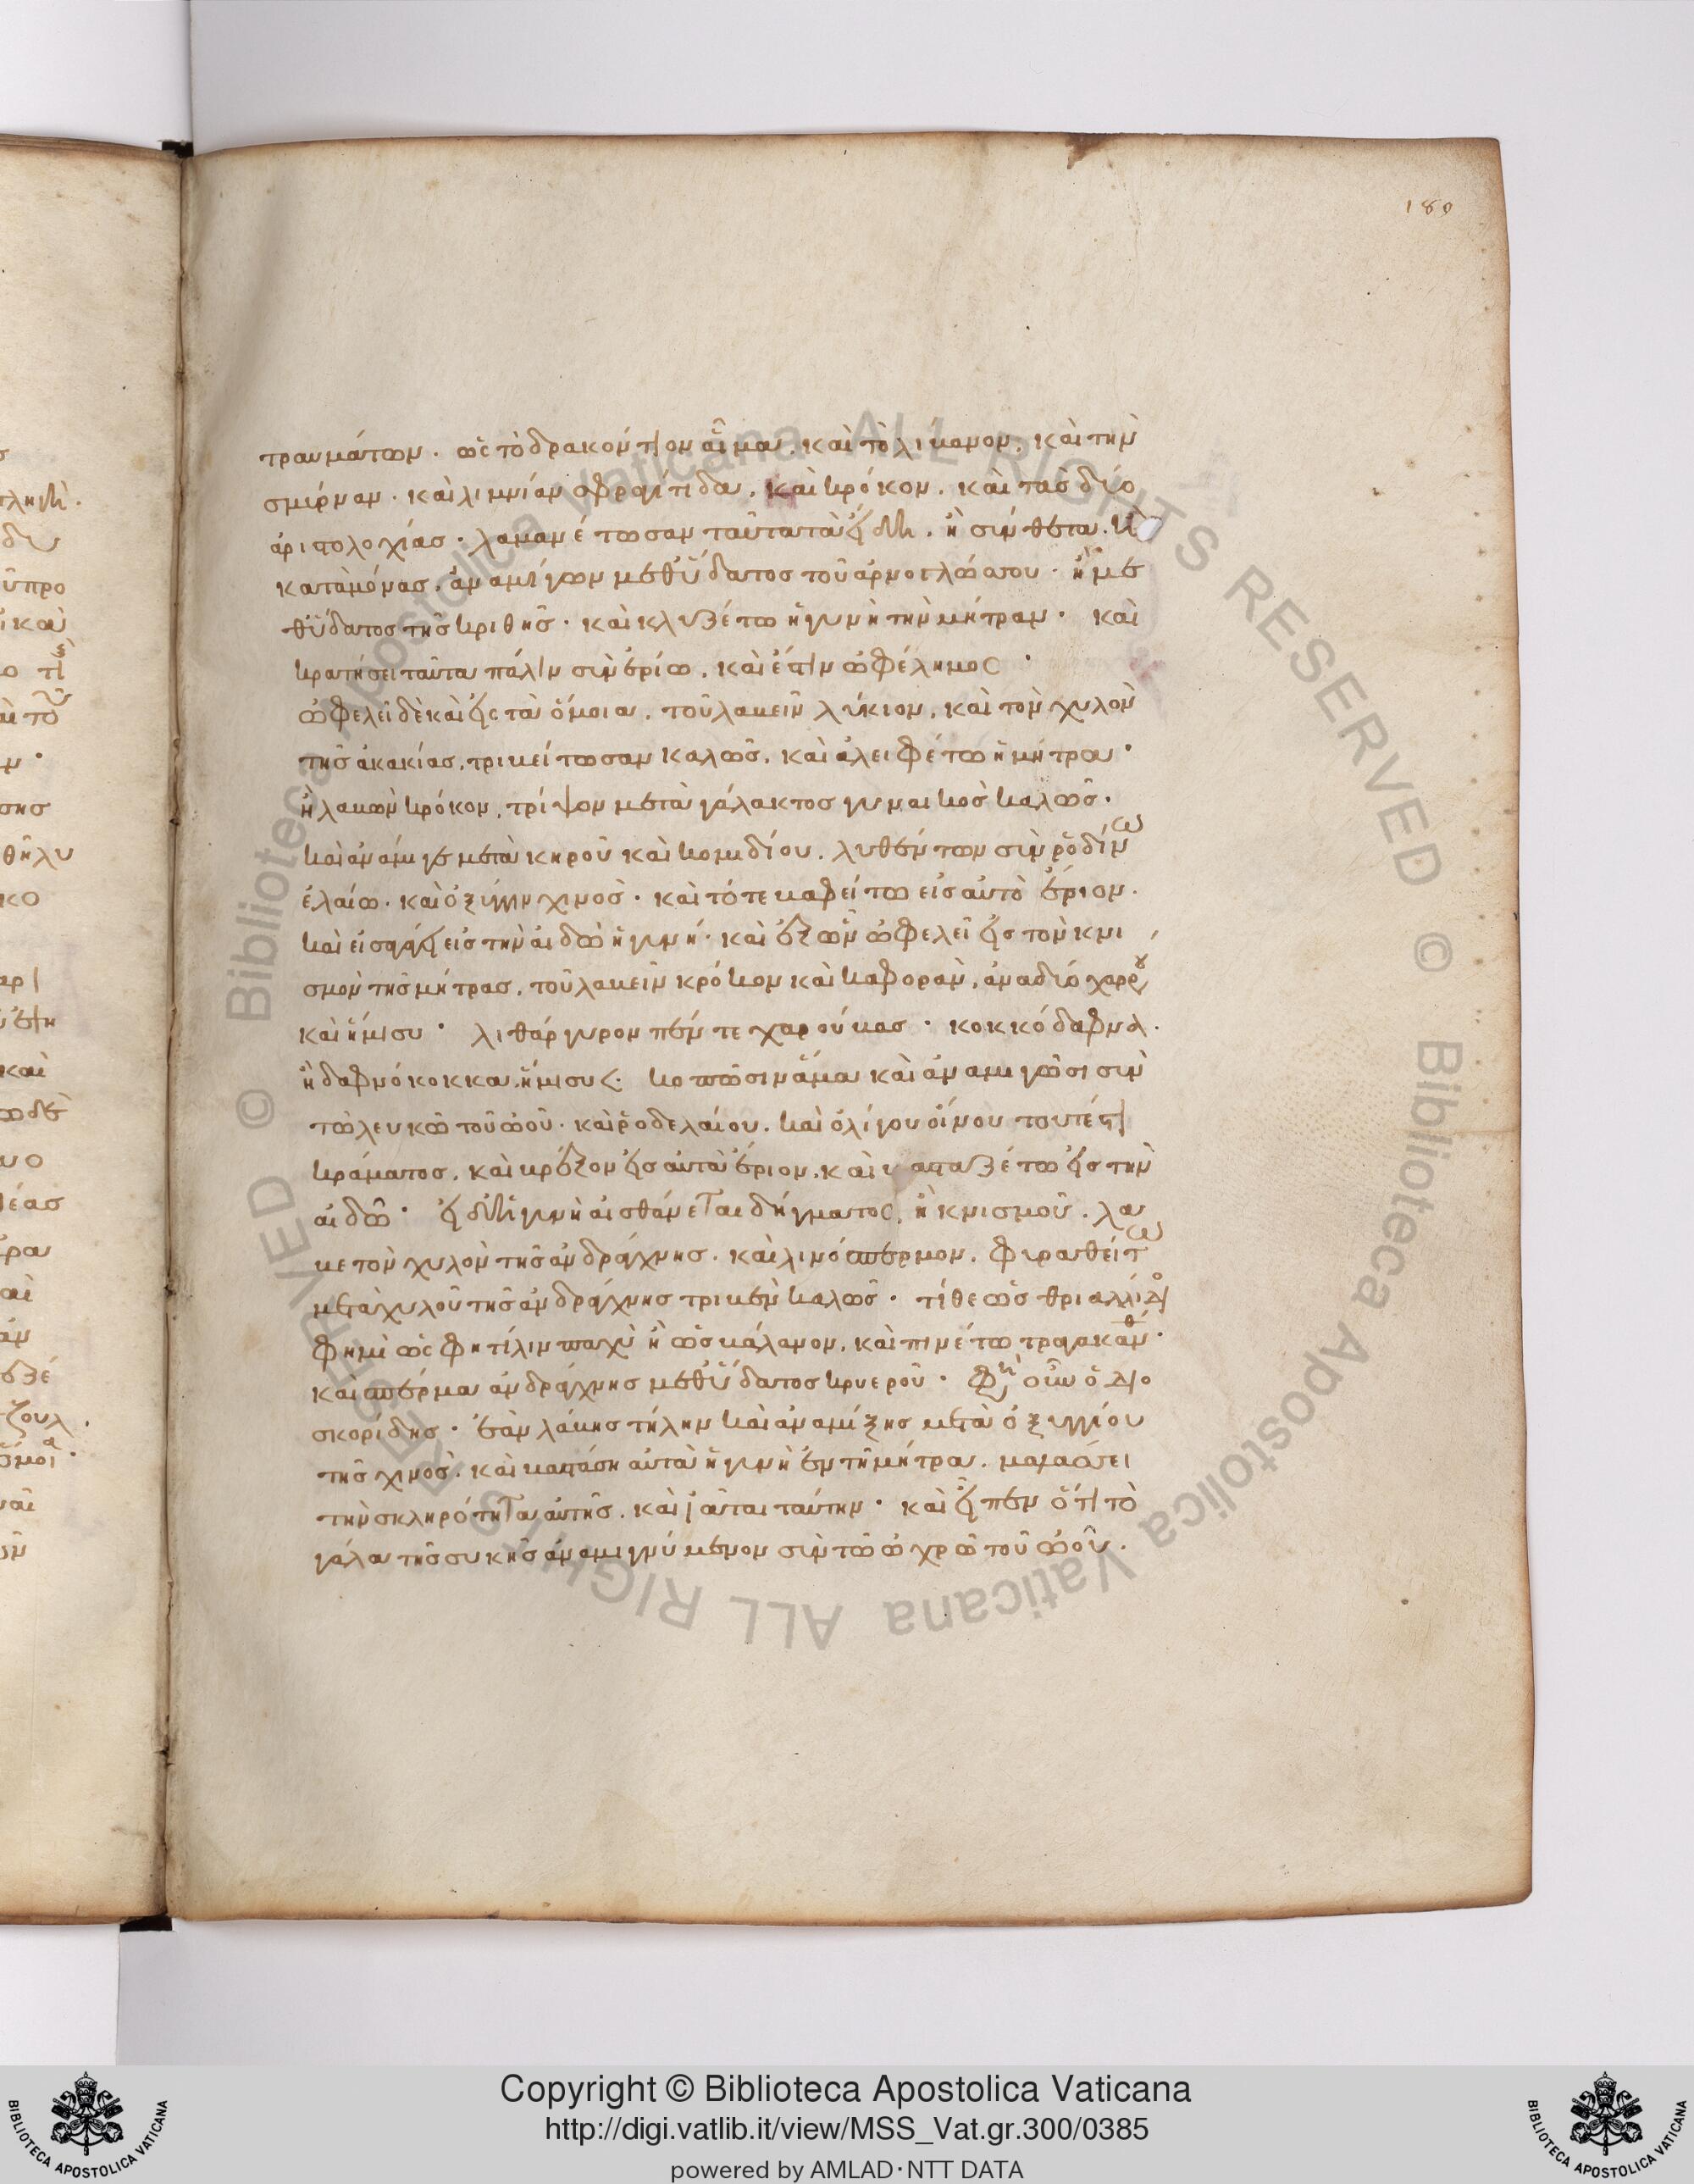 189
τραυμάτων. ὡς τὸ δρακόντιον αἷμα. καὶ τὸ λίβανον. καὶ τὴν
σμύρναν. καὶ λιμνίαν σφραγίτιδα. καὶ κρόκον. καὶ τὰς δύο
ἀριστολοχίας. λαβανέτωσαν ταῦτα τὰ εἴδη. ἢ σύνθετα. ἢ
καταμόνας. ἀναμίγων μεθ ὕδατος τοῦ ἀρνογλώσσου. ἢ με
θ ὕδατος τῆς κριθῆς. καὶ κλυζέτω ἡ γυνὴ τὴν μήτραν. καὶ
κρατήσει ταῦτα πάλιν σὺν ἐρίω. καὶ ἔστιν ὠφέλημος.
ὠφελεῖ δὲ καὶ εἰς τὰ ὅμοια. τοῦ λαβεῖν λύκιον. καὶ τὸν χυλὸν
τῆς ἀκακίας. τριβείτωσαν καλῶς. καὶ ἀλειφέτω ἡ μήτρα.
ἢ λαβὼν κρόκον. τρίψον μετὰ γάλακτος γυναικὸς καλῶς.
καὶ ἀνάμιγε μετὰ κηροῦ καὶ κομιδίου. λυθέντων σὺν ῥοδίνω
ἐλαίω. καὶ ὀξύγγην χινὸς. καὶ τότε βαφείτω εἰς αὐτὸ ἔριον.
καὶ εἰσάγει εἰς τὴν αἰδῶ ἡ γυνή. καὶ ἔξων ὠφελεῖ εἰς τὸν κνι
σμὸν τῆς μήτρας. τοῦ λαβεῖν κρόκον καὶ καφορὰν. ἀνὰ δύο χαρου
καὶ ἥμισυ. λιθάργυρον πέντε χαρούβας. κοκκόδαφνα.
ἢ δαφνόκοκκα. ἥμισυ. κοπῶσιν ἅμα καὶ ἀναμιγῶσι σὺν
τῶ λευκῶ τοῦ ὠοῦ. καὶ ῥοδελαίου. καὶ ὀλίγου οἴνου τουτέστι
κράματος. καὶ βρέξον εἰς αὐτὰ ἔριον. καὶ βασταζέτω εἰς τὴν
αἰδῶ. εἰ δὲ ἡ γυνὴ αἰσθάνεται δήγματος. ἢ κνισμοῦ. λα
βε τὸν χυλὸν τῆς ἀνδράχνης. καὶ λινόσπερμον. φυραθείτω
μετὰ χυλοῦ τῆς ἀνδράχνης τριβὲν καλῶς. τίθε ὡς θριαλλίδ
φημὶ ὡς φητίλιν παχὺ ἢ ὡς βάλανον. καὶ πινέτω τραγακάνθ.
καὶ σπέρμα ἀνδράχνης μεθ ὕδατος κρυεροῦ. φησὶ οὖν ὁ διο
σκορίδης. ἐὰν λάβης τήλην καὶ ἀναμίξης μετὰ ὀξυγγίου
τῆς χινὸς. καὶ βαστάση αὐτὰ ἡ γυνὴ ἐν τῆ μήτρα. μαλάσσει
τὴν σκληρότητα αὐτῆς. καὶ ἰᾶται ταύτην. καὶ εἶπεν ὅτι τὸ
γάλα τῆς συκῆς ἀναμιγνύμενον σὺν τῶ ὠχρῶ τοῦ ὠοῦ.
Copyright © Biblioteca Apostolica Vaticana
http://digi.vatlib.it/view/MSS_Vat.gr.300/0385
powered by AMLAD·NTT DATA